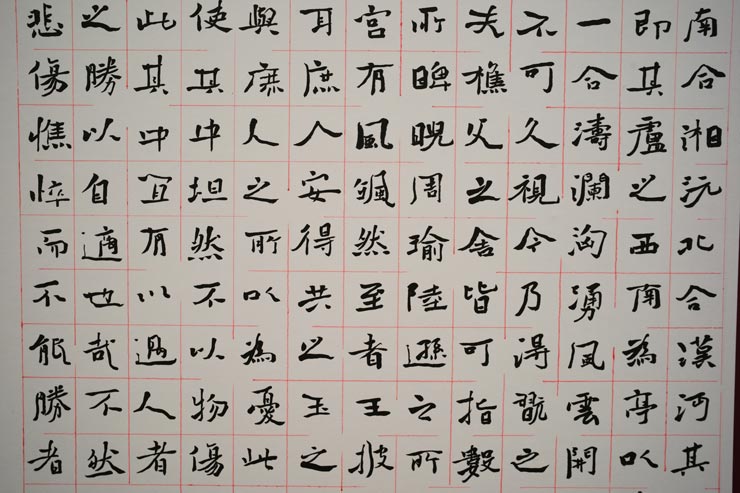 南合湘沅北合漢沔其
即其廬之西南為亭以
一合濤瀾洶湧風雲開
不可久視今乃得翫之
夫樵父之舍皆可指數
所睥睨周瑜陸遜之所
宮有風颯然至者王披
耳庶人安得共之玉之
與庶人之所以為憂此
使其中坦然不以物傷
此其中宜有以過人者
之勝以自適也哉不然
悲傷憔悴而不能勝者